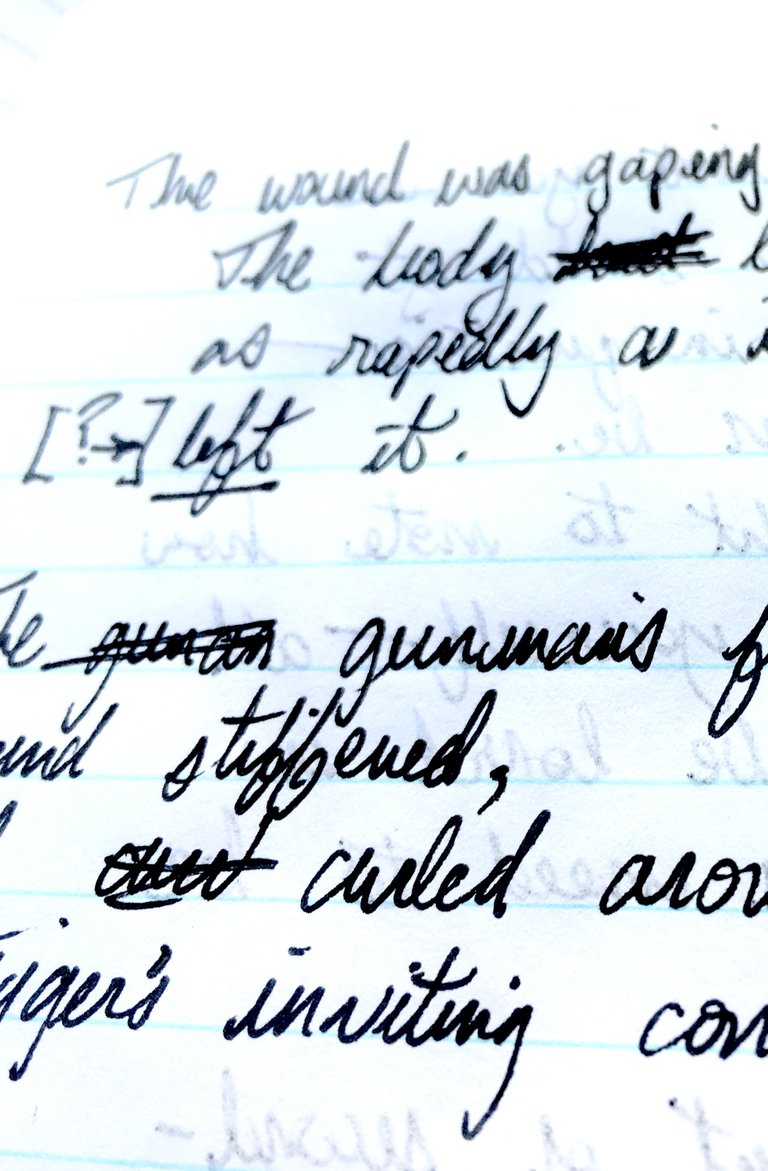 The wound was gaping
The body
as rapidly as
[?→] left it.
The gunman's f
und stiffened,
curled arou
igger's inviting con